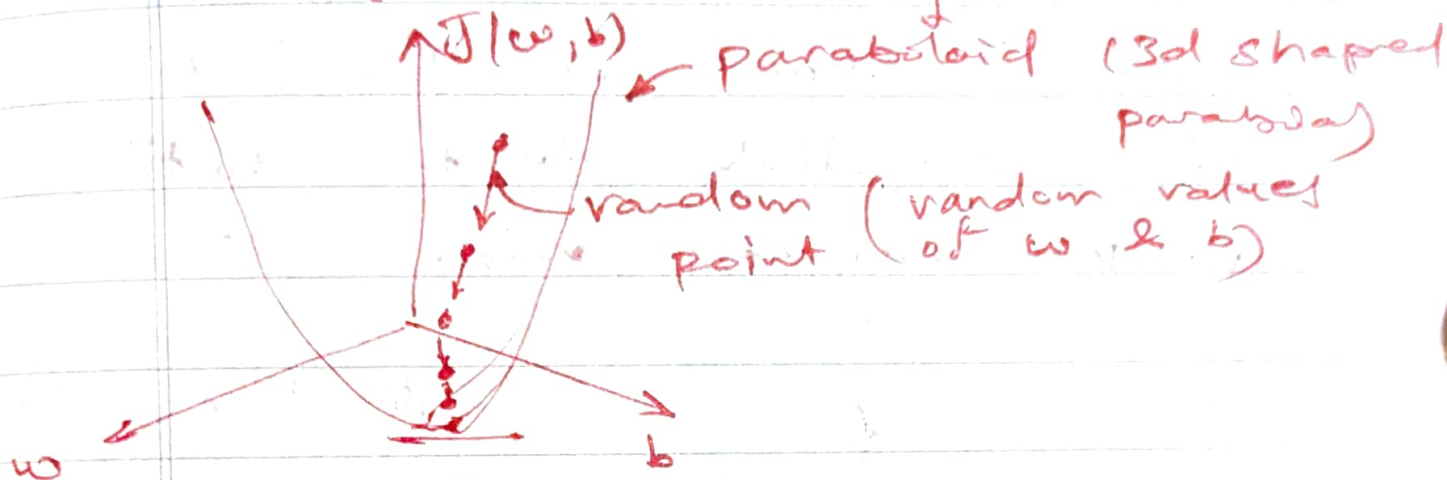 J(w,b)
paraboloid (3d shaped
parabola)
random (random values
point of w & b)
w
b